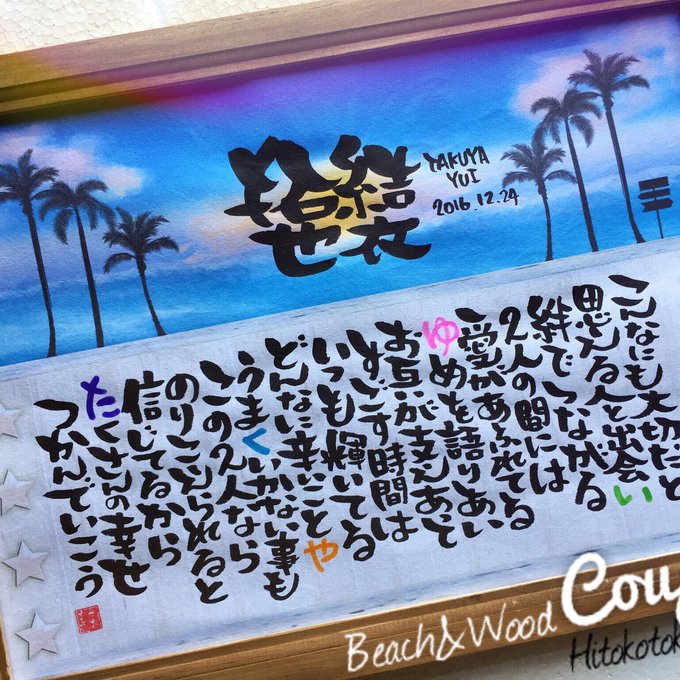 結衣
TAKUYA
YUI
2016.12.24
こんなにも大切だと
思える人と出会い
絆でつながる
2人の間には
愛があふれてる
ゆめを語りあい
お互いが支えあって
すごす時間は
いつも輝いてる
どんなに辛いことや
うまくいかない事も
この2人なら
のりこえられると
信じてるから
たくさんの幸せ
つかんでいこう
Beach&Wood Coup
Hitokotok